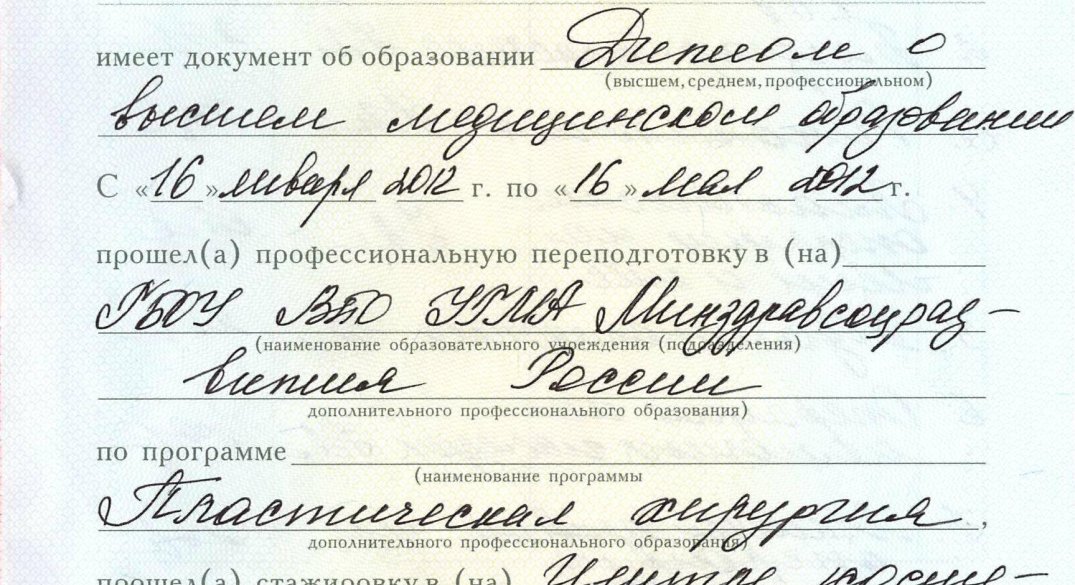 имеет документ об образовании Диплом о
(высшем, среднем, профессиональном)
высшем медицинском образовании
С «16» января 2012 г. по «16» мая 2012 г.
прошел(а) профессиональную переподготовку в (на)
ГБОУ ВПО УГМА Минздравсоцраз-
(наименование образовательного учреждения (подразделения)
вития России
дополнительного профессионального образования)
по программе
(наименование программы
Пластическая хирургия,
дополнительного профессионального образования)
прошел(а) стажировку в (на) Центре косме-